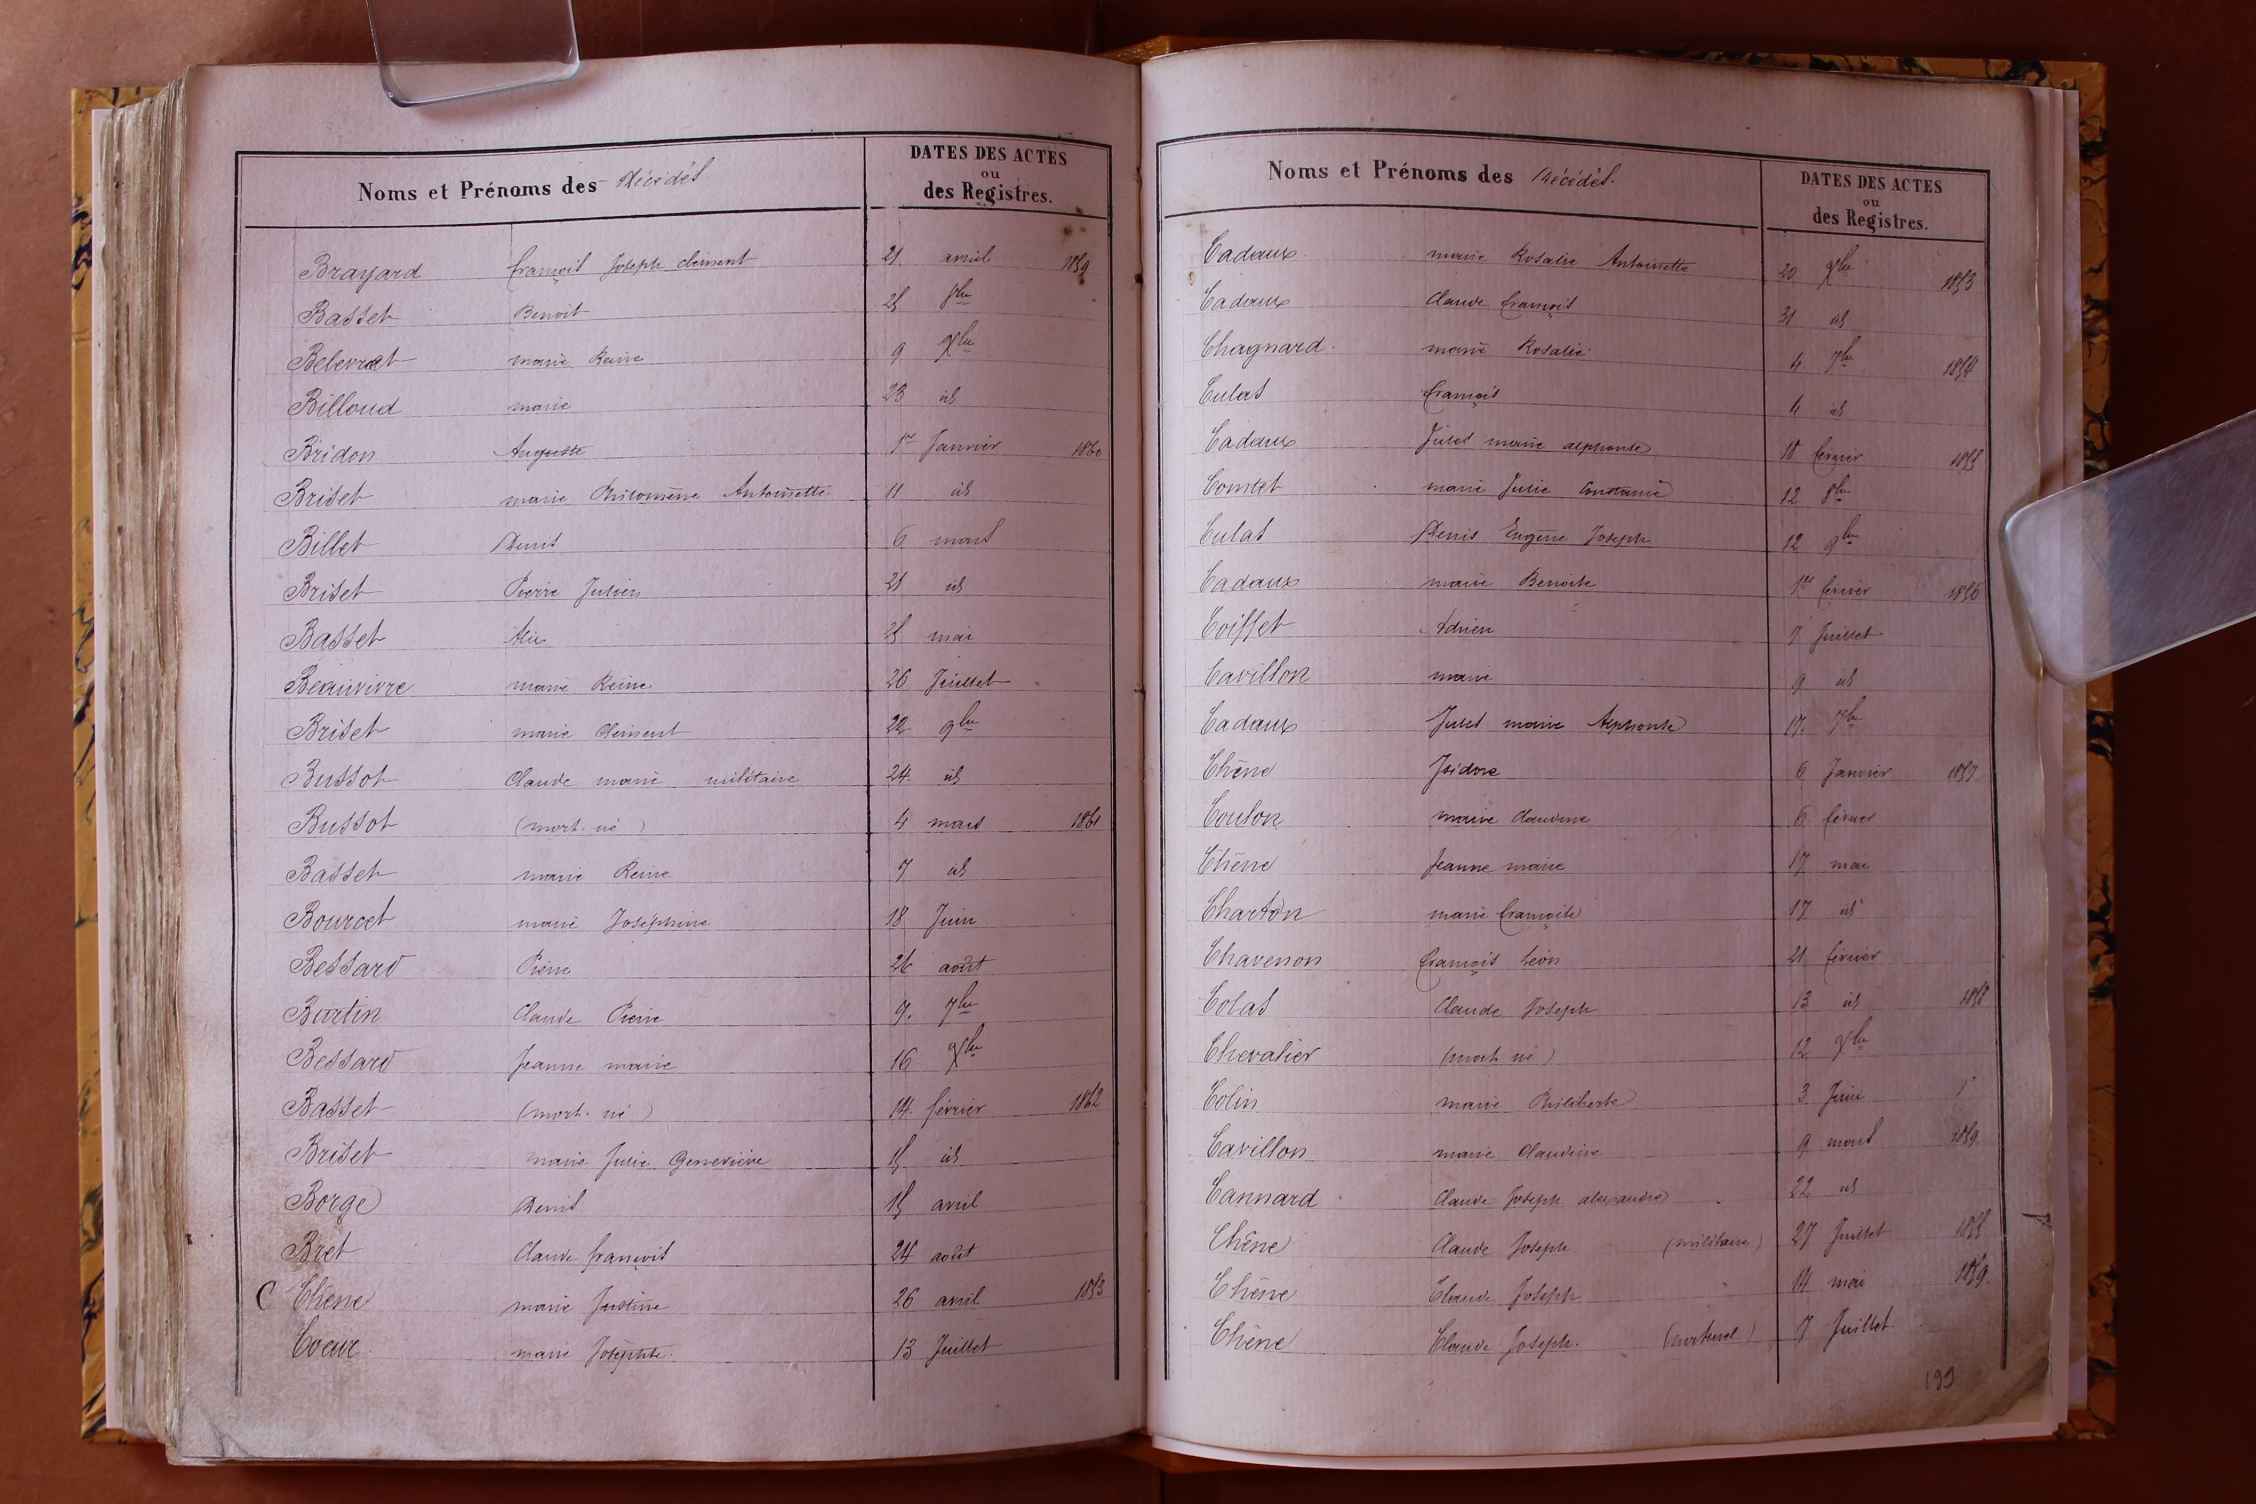 Noms et Prénoms des Décédés
DATES DES ACTES
ou
des Registres.
Brayard françois Joseph clément 21 avril 1859
Basset Benoit 25 8bre
Beberrat marie Reine 9 Xbre
Billoud marie 23 id
Bridon Auguste 1er Janvier 1860
Briset marie Philomène Antoinette 11 id
Billet Denis 6 mars
Briset Pierre Julien 21 id
Basset 25 mai
Beauvivre marie Reine 26 Juillet
Briset marie Clément 22 9bre
Bussot Claude marie militaire 24 id
Bussot (mort-né) 4 mars 1861
Basset marie Reine 7 id
Bourcet marie Joséphine 18 Juin
Bessard Pierre 26 août
Burtin Claude Pierre 9. 7bre
Bessard Jeanne marie 16 Xbre
Basset (mort-né) 14 février 1862
Briset marie Julie Geneviève 15 id
Borge Denis 15 avril
Bret Claude françois 24 août
C Chêne marie Justine 26 avril 1853
Coeur marie Josephte 13 Juillet
Noms et Prénoms des Décédés.
DATES DES ACTES
ou
des Registres.
Cadaux marie Rosalie Antoinette 20 Xbre 1853
Cadaux Claude françois 31 id
Chagnard marie Rosalie 4 7bre 1854
Culas françois 4 id
Cadaux Jules marie alphonse 18 février 1855
Comtet marie Julie Constance 12 8bre
Culas Denis Eugène Joseph 12 9bre
Cadaux marie Benoite 1er février 1856
Coiffet Adrien 7 Juillet
Cavillon marie 9 id
Cadaux Jules marie Alphonse 17 7bre
Chêne Isidore 6 Janvier 1857
Coulon marie Claudine 6 février
Chêne Jeanne marie 17 mai
Charton marie françoise 17 id
Chavenon françois Léon 21 février
Colas Claude Joseph 13 id 1858
Chevalier (mort-né) 12 Xbre
Colin marie Philiberte 3 Juin
Cavillon marie Claudine 9 mars 1859
Cannard Claude Joseph alexandre 22 id
Chêne Claude Joseph (militaire) 27 Juillet 1855
Chêne Claude Joseph 14 mai 1859.
Chêne Claude Joseph. 7 Juillet
199